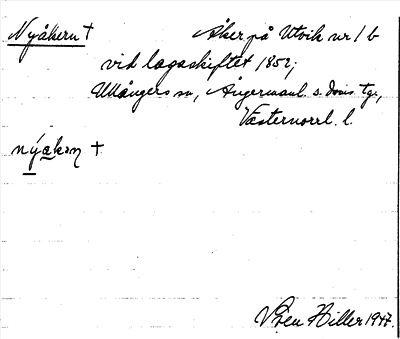 Nyåkern † Åker på Utvik nr 1 b
vid lagaskiftet 1852;
Ullångers sn, Ångermanl. s. doms tg.,
Västernorrl. l.
nýakɔn †
Hiller 1947.